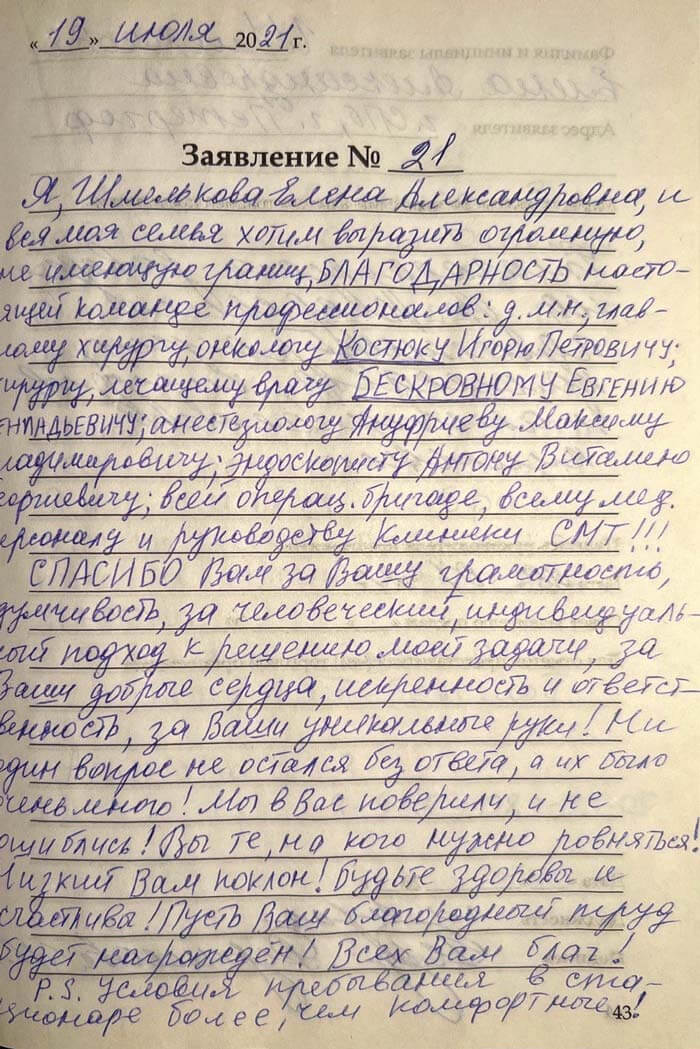 «19» июля 2021 г.
Заявление № 21
Я, Шмелькова Елена Александровна, и
вся моя семья хотим выразить огромную,
не имеющую границ, БЛАГОДАРНОСТЬ насто-
ящей команде профессионалов: д.м.н., глав-
ному хирургу, онкологу Костюку Игорю Петровичу;
хирургу, лечащему врачу БЕСКРОВНОМУ ЕВГЕНИЮ
ЕННАДЬЕВИЧУ; анестезиологу Ануфриеву Максиму
ладимировичу; эндоскописту Антону Виталино
еоргиевичу; всей операц. бригаде, всему мед.
ерсоналу и руководству Клиники СМТ!!!
СПАСИБО Вам за Вашу грамотность,
думчивость, за человеческий, индивидуаль-
ный подход к решению моей задачи, за
Ваши добрые сердца, искренность и ответст-
венность, за Ваши уникальные руки! Ни
один вопрос не остался без ответа, а их было
очень много! Мы в Вас поверили, и не
ошиблись! Вы те, на кого нужно ровняться!
Низкий Вам поклон! Будьте здоровы и
счастливы! Пусть Ваш благородный труд
будет награждён! Всех Вам благ!
P.S. Условия пребывания в ста-
ционаре более, чем комфортные!
43
Фамилия и инициалы заявителя
Елена Александровна
г. СПб, г. Петергоф
Адрес заявителя